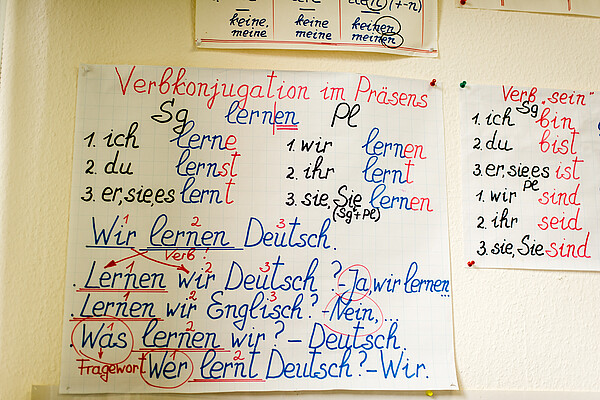 keine, meine
keine meine
keinen meinen
Verbkonjugation im Präsens
Sg lernen Pl
1. ich lerne 1. wir lernen
2. du lernst 2. ihr lernt
3. er, sie, es lernt 3. sie, Sie lernen
(Sg+Pl)
1 2 3
Wir lernen Deutsch.
Verb!
1 2 3
Lernen wir Deutsch? - Ja, wir lernen...
1 2 3
Lernen wir Englisch? - Nein, ...
1 2
Was lernen wir? - Deutsch.
Fragewort
1 2 3
Wer lernt Deutsch? - Wir.
Verb "sein"
Sg
1. ich bin
2. du bist
3. er, sie, es ist
Pl
1. wir sind
2. ihr seid
3. sie, Sie sind